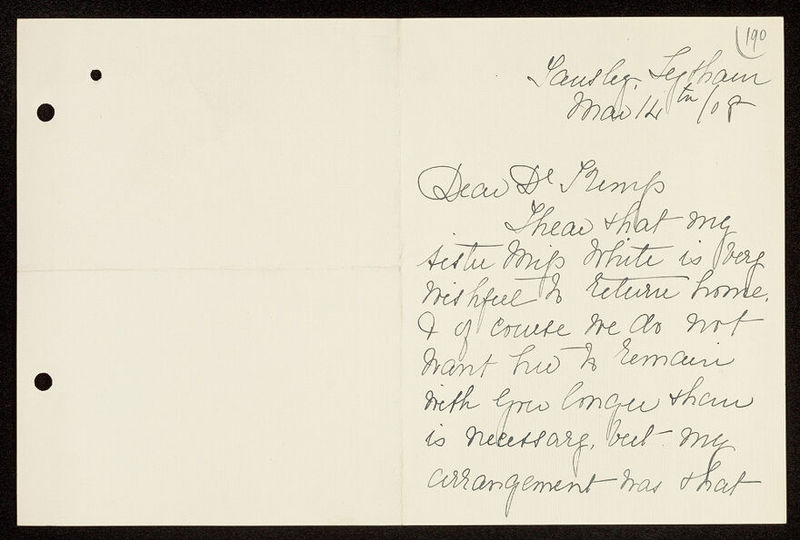 190
Lytham
Mar 14th/08
Dear Dr Kemp
I hear that my
sister Miss White is very
wishful to return home,
& of course we do not
want her to remain
with you longer than
is necessary, but my
arrangement was that